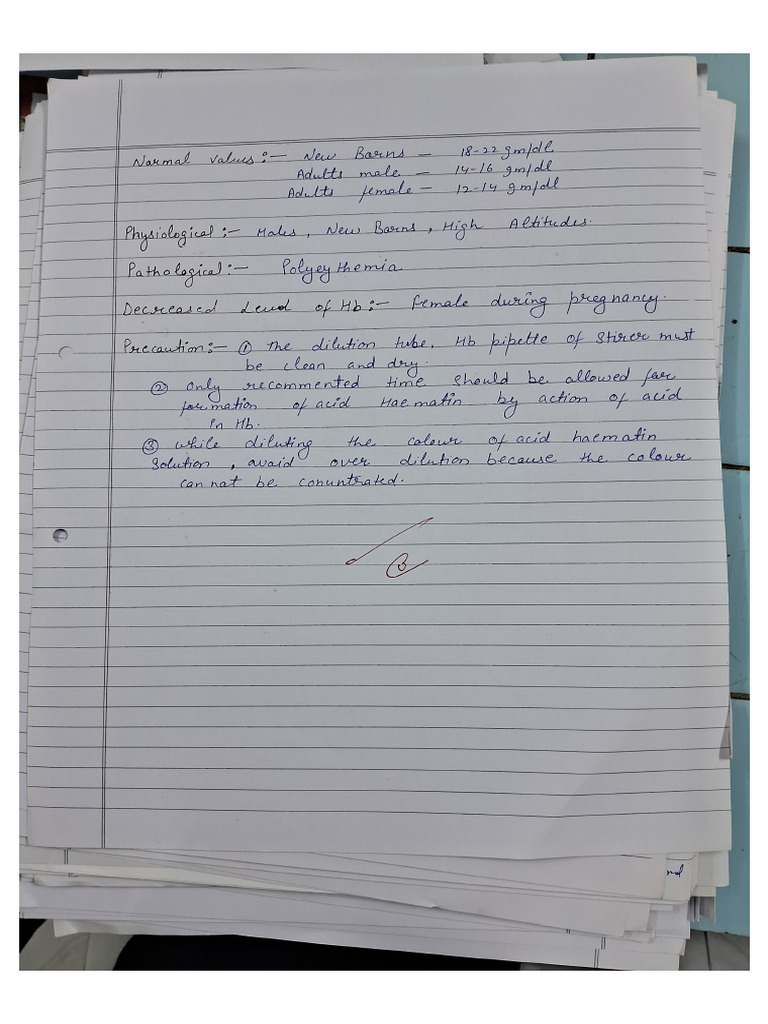 Normal values :- New Barns - 18-22 gm/dl.
Adults male - 14-16 gm/dl
Adults female - 12-14 gm/dl
Physiological :- Males, New Barns, High Altitudes.
Pathological :- Polyeythemia
Decreased Level of Hb :- female during pregnancy.
Precaution :- ① The dilution tube, Hb pipette of Stirer must
be clean and dry.
② only recommented time should be allowed far
formation of acid Haematin by action of acid
in Hb.
③ while diluting the colour of acid haematin
solution, avaid over dilution because the colour
can nat be conuntrated.